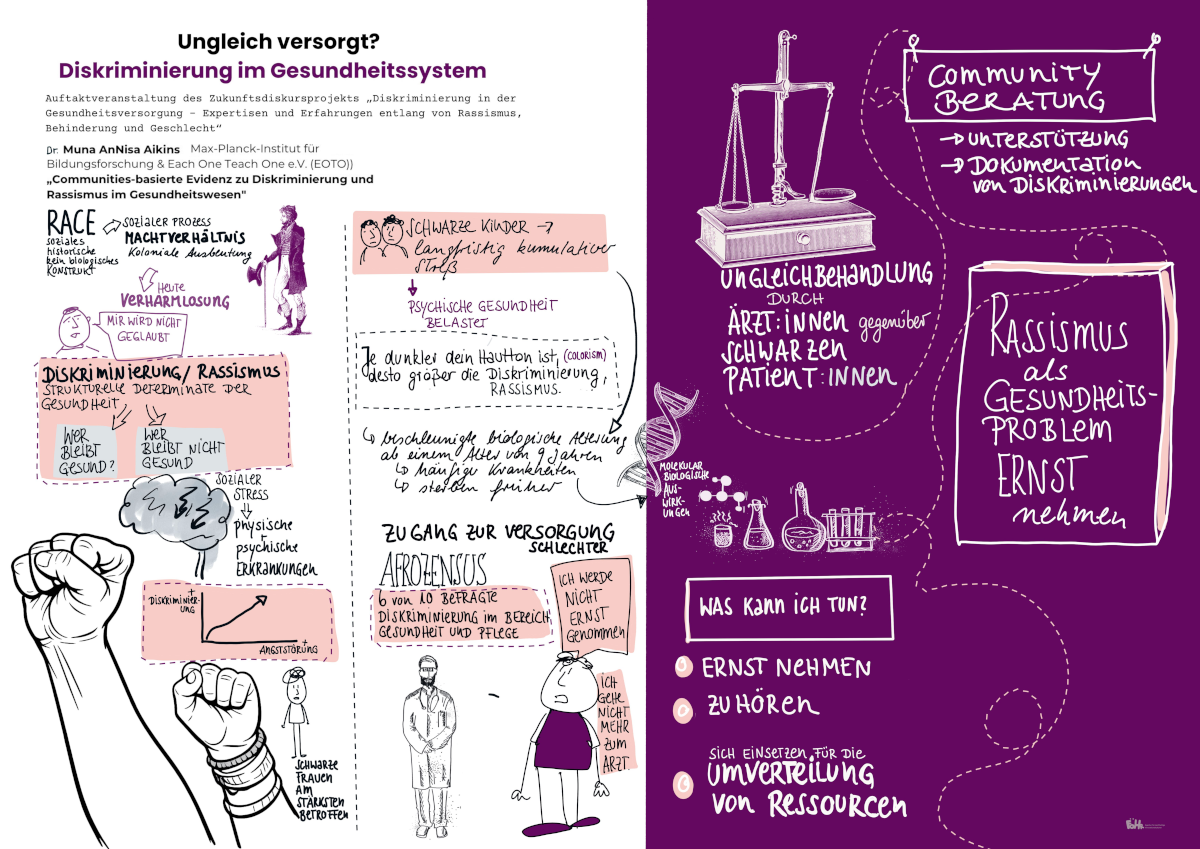 Ungleich versorgt?
Diskriminierung im Gesundheitssystem
Auftaktveranstaltung des Zukunftsdiskursprojekts „Diskriminierung in der
Gesundheitsversorgung – Expertisen und Erfahrungen entlang von Rassismus,
Behinderung und Geschlecht“
Dr. Muna AnNisa Aikins Max-Planck-Institut für
Bildungsforschung & Each One Teach One e.V. (EOTO))
„Communities-basierte Evidenz zu Diskriminierung und
Rassismus im Gesundheitswesen"
RACE
soziales
historische
kein biologisches
KONSTRUKT
SOZIALER PROZESS
MACHTVERHÄLTNIS
Koloniale Ausbeutung
HEUTE
VERHARMLOSUNG
MIR WIRD NICHT
GEGLAUBT
DISKRIMINIERUNG/ RASSISMUS
STRUKTURELLE DETERMINATE DER
GESUNDHEIT,
WER
BLEIBT
GESUND?
WER
BLEIBT NICHT
GESUND
SOZIALER
STRESS
physische
+
psychische
ERKRANKUNGEN
+
DISKRIMINIER-
UNG
+
ANGSTSTÖRUNG
SCHWARZE
FRAUEN
AM
STÄRKSTEN
BETROFFEN
SCHWARZE KINDER →
langfristig kumulativer
Streß
PSYCHISCHE GESUNDHEIT
BELASTET
Je dunkler dein Hautton ist, (COLORISM)
desto größer die Diskriminierung,
RASSISMUS.
beschleunigte biologische Alterung
ab einem Alter von 9 Jahren
häufiger Krankheiten
sterben früher
ZUGANG ZUR VERSORGUNG
SCHLECHTER
AFROZENSUS
6 von 10 BEFRAGTE
DISKRIMINIERUNG im BEREICH
GESUNDHEIT UND PFLEGE
ICH WERDE
NICHT
ERNST
GENOMMEN
ICH
GEHE
NICHT
MEHR
ZUM
ARZT.
UNGLEICHBEHANDLUNG
DURCH
ÄRZT:INNEN gegenüber
SCHWARZEN
PATIENT:INNEN
MOLEKULAR
BIOLOGISCHE
AUS-
WIRK-
UNGEN
COMMUNITY
BERATUNG
→ UNTERSTÜTZUNG
→ DOKUMENTATION
von DISKRIMINIERUNGEN
RASSISMUS
als
GESUNDHEITS-
PROBLEM
ERNST
nehmen
WAS KANN ICH TUN?
ERNST NEHMEN
ZUHÖREN
SICH EINSETZEN FÜR DIE
UMVERTEILUNG
VON RESSOURCEN